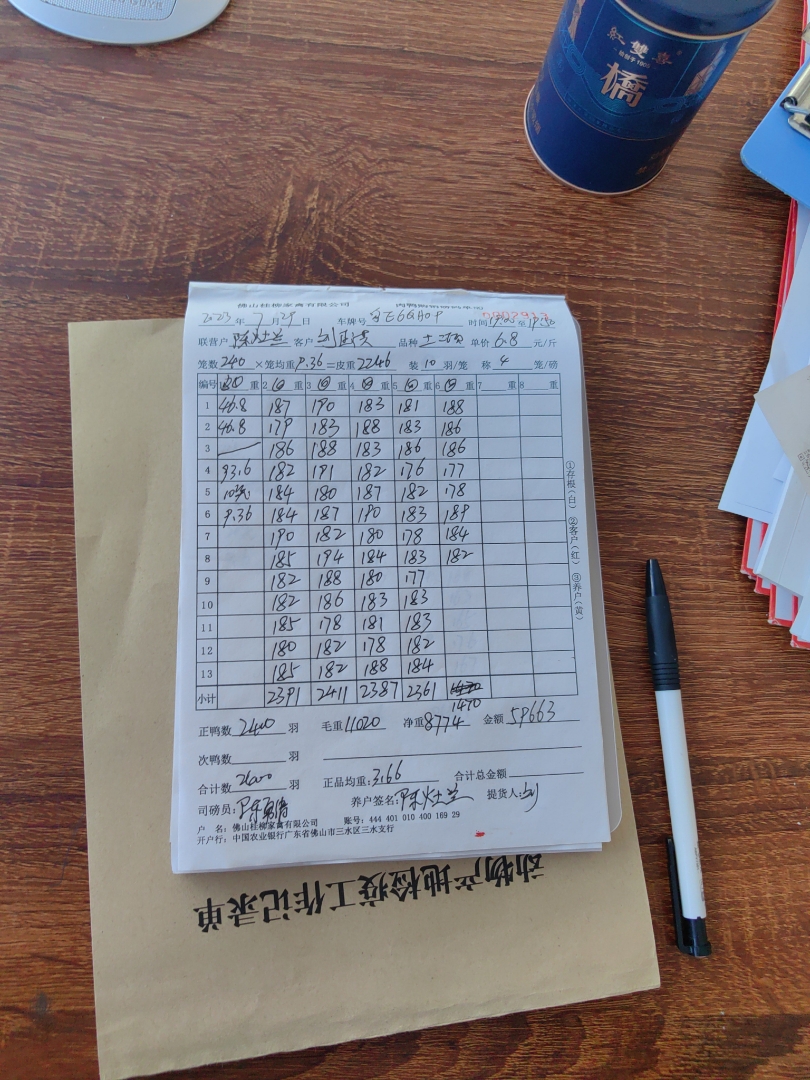 紅雙喜
橋
佛山桂柳家禽有限公司
2023年7月29日 车牌号 时间 至
联营户 陈灶兰 客户 品种 单价 6.8 元/斤
笼数 240 ×笼均重 9.36 =皮重 2246 装 10 羽/笼 称 4 笼/磅
编号 重 2 重 3 重 4 重 5 重 6 重 7 重 8 重
1 46.8 187 190 183 181 188
2 46.8 179 183 188 183 186
3 186 188 183 186 186
4 93.6 182 191 182 176 177
5 10笼 184 180 187 182 178
6 9.36 184 187 190 183 189
7 190 182 180 178 184
8 185 194 184 183 182
9 182 188 180 177
10 182 186 183 183
11 185 178 181 183
12 180 182 178 182
13 185 182 188 184
小计 2391 2411 2387 2361 1470
①存根(白) ②客户(红) ③养户(黄)
正鸭数 2400 羽 毛重 11020 净重 8774 金额 59663
次鸭数 羽
合计数 2400 羽 正品均重: 3.66 合计总金额
司磅员: 养户签名: 陈灶兰 提货人: 刘
户 名: 佛山桂柳家禽有限公司 账号: 444 401 010 400 169 29
开户行: 中国农业银行广东省佛山市三水区三水支行
动物产地检疫工作记录单